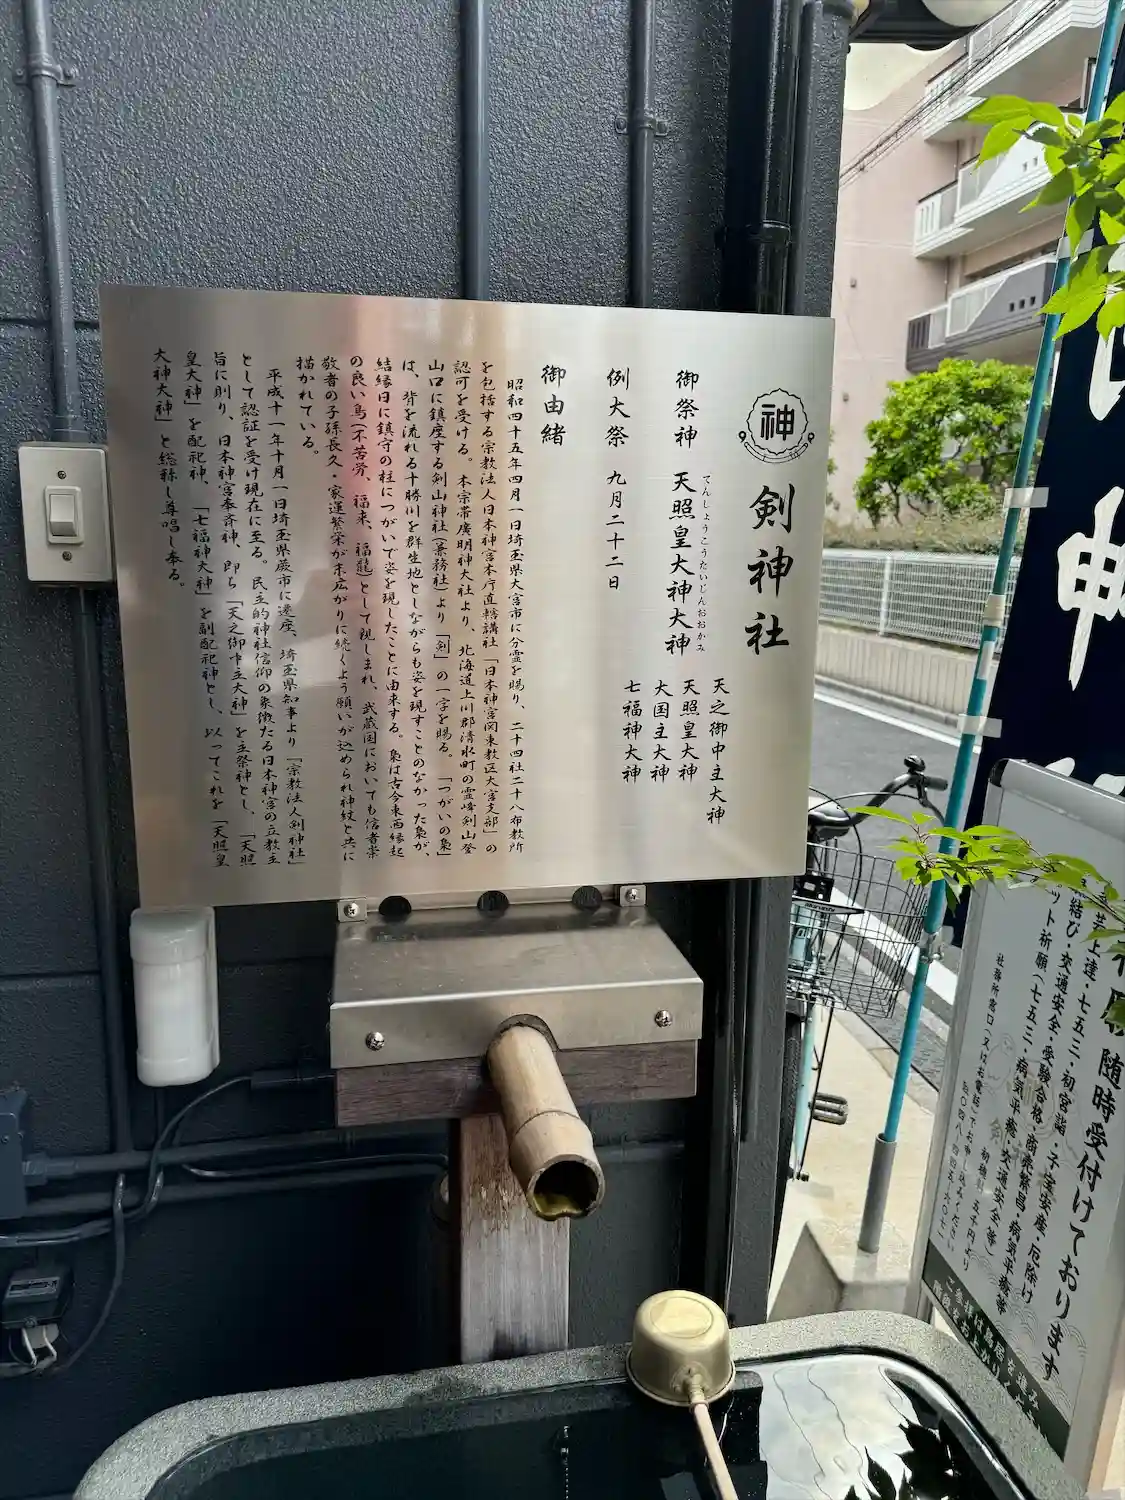 神
剣神社
御祭神　天照皇大神大神
てんしょうこうたいじんおおかみ
天之御中主大神
天照皇大神
大国主大神
七福神大神
例大祭　九月二十二日
御由緒
昭和四十五年四月一日埼玉県大宮市に分霊を賜り、二十四社二十八布教所
を包括する宗教法人日本神宮本庁直轄講社「日本神宮関東教区大宮支部」の
認可を受ける。本宗帯廣明神大社より、北海道上川郡清水町の霊峰剣山登
山口に鎮座する剣山神社(兼務社)より「剣」の一字を賜る。「つがいの梟」
は、背を流れる十勝川を群生地としながらも姿を現すことのなかった梟が、
結縁日に鎮守の柱につがいで姿を現したことに由来する。梟は古今東西縁起
の良い鳥(不苦労、福来、福龍)として親しまれ、武蔵国においても信者崇
敬者の子孫長久・家運繁栄が末広がりに続くよう願いが込められ神紋と共に
描かれている。
平成十一年十月一日埼玉県蕨市に遷座、埼玉県知事より『宗教法人剣神社』
として認証を受け現在に至る。民主的神社信仰の象徴たる日本神宮の立教主
旨に則り、日本神宮奉斉神、即ち「天之御中主大神」を主祭神とし、「天照
皇大神」を配祀神、「七福神大神」を副配祀神とし、以ってこれを「天照皇
大神大神」と総称し尊唱し奉る。
神
随時受付けております
芸上達・七五三・初宮詣・子宝安産・厄除け
結び・交通安全・受験合格・商売繁昌・病気平癒等
ット祈願(七五三・病気平癒・交通安全等)
初穂料　五千円より
社務所窓口(又はお電話)でお申し込みください